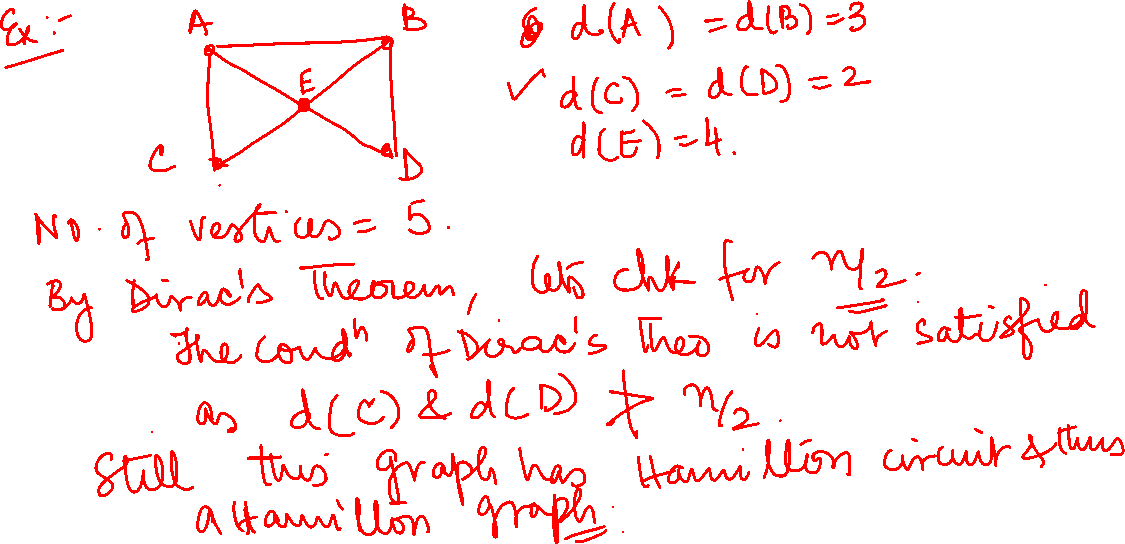 Ex :-
A B
E
C D
d(A) = d(B) = 3
✓ d(C) = d(D) = 2
d(E) = 4.
No. of vertices = 5.
By Dirac's Theorem, lets chk for n/2.
The condⁿ of Dirac's Theo is not satisfied
as d(C) & d(D) ≯ n/2.
Still this graph has Hamilton circuit & thus
a Hamilton graph.